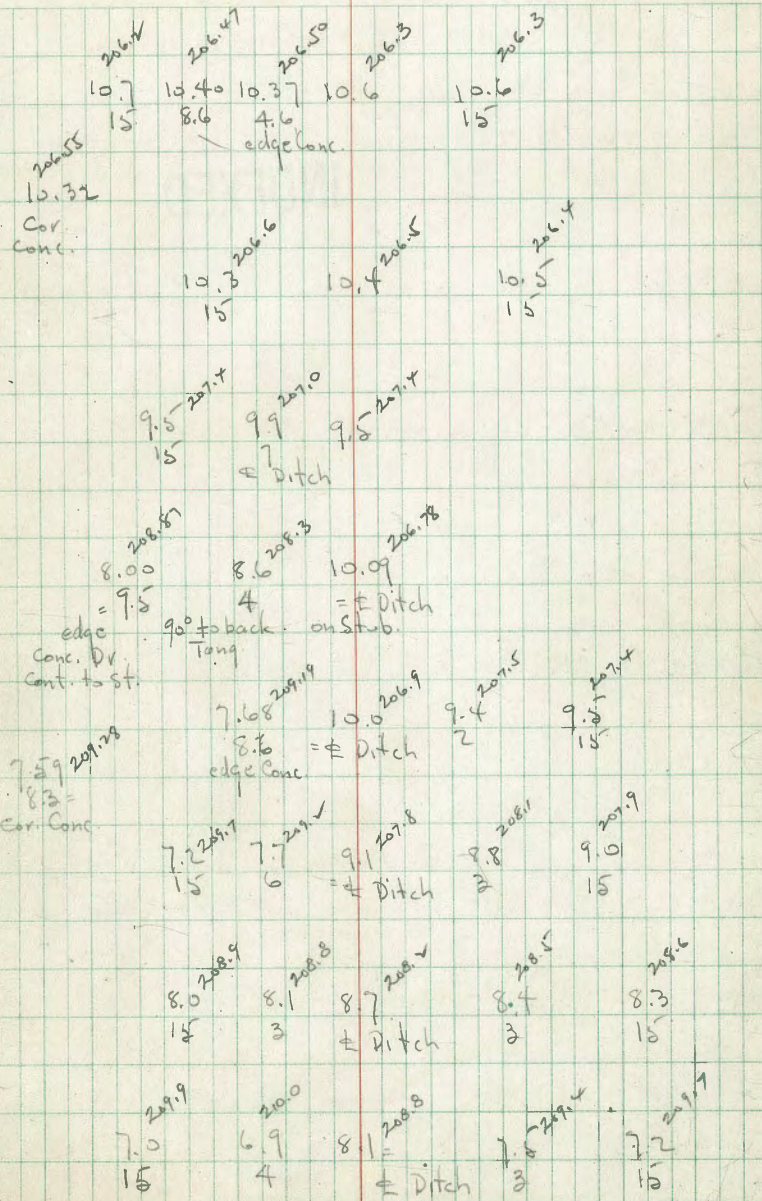 206.2 206.47 206.50 206.3 206.3
10.7 10.40 10.37 10.6 10.6
15 8.6 4.6 15
edge Conc.
206.55
10.32
Cor.
Conc.
206.6 206.5 206.4
10.3 10.4 10.5
15 15
207.4 207.0 207.4
9.5 9.9 9.5
15 7
℄ Ditch
208.87 208.3 206.78
8.00 8.6 10.09
= 9.5 4 = ℄ Ditch
edge 90° to back. on Stub.
Conc. Dr. Tang
Cont. to St.
209.19 206.9 207.5 207.4
7.68 10.0 9.4 9.5
8.6 = ℄ Ditch 2 15
edge Conc.
209.28
7.59
8.3 =
Cor. Conc.
209.7 209.2 207.8 208.1 207.9
7.2 7.7 9.1 8.8 9.0
15 6 = ℄ Ditch 3 15
208.9 208.8 208.2 208.5 208.6
8.0 8.1 8.7 8.4 8.3
15 3 ℄ Ditch 3 15
209.9 210.0 208.8 209.4 209.7
7.0 6.9 8.1 = 7.5 7.2
15 4 ℄ Ditch 3 15